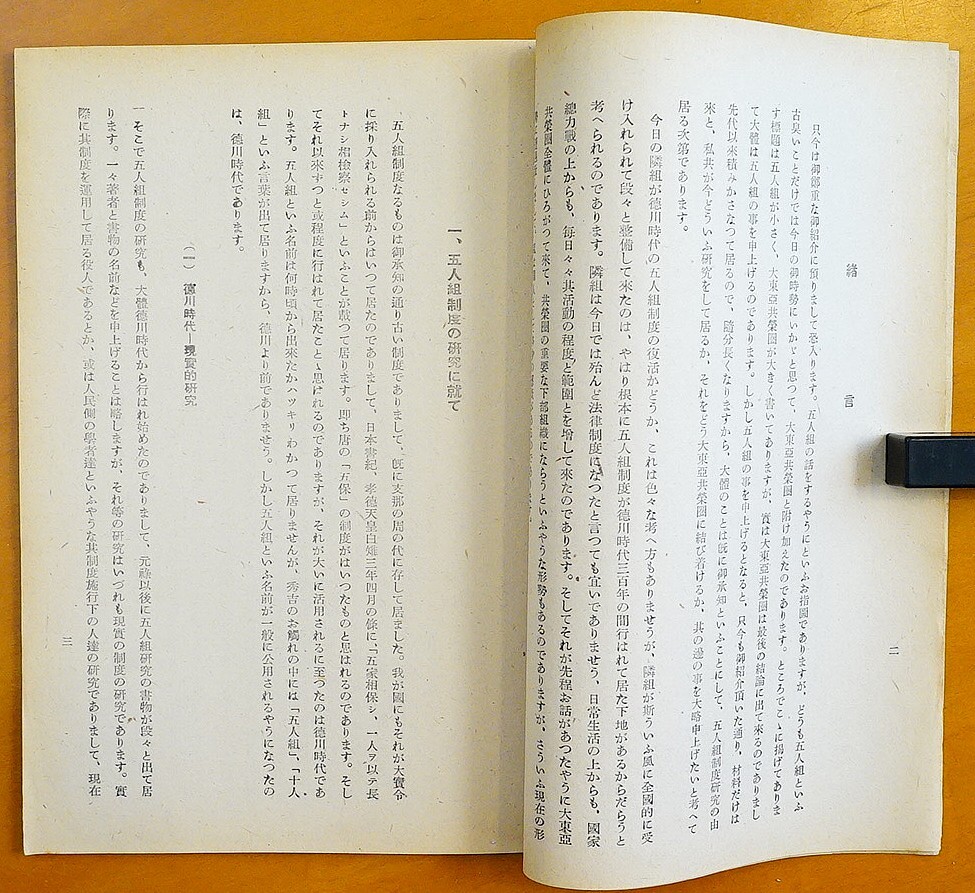 緒言
只今は御鄭重な御紹介に預りまして恐入ります。五人組の話をするやうにといふお指圖でありますが、どうも五人組といふ
古臭いことだけでは今日の御時勢にいかゞと思つて、大東亞共榮圏と附け加えたのであります。ところでこゝに揚げてありま
す標題は五人組が小さく、大東亞共榮圏が大きく書いてありますが、實は大東亞共榮圏は最後の結論に出て來るのでありまし
て大體は五人組の事を申上げるのであります。しかし五人組の事を申上げるとなると、只今も御紹介頂いた通り、材料だけは
先代以來積みかさなつて居るので、隨分長くなりますから、大體のことは既に御承知といふことにして、五人組制度研究の由
來と、私共が今どういふ研究をして居るか、それをどう大東亞共榮圏に結び着けるか、其の邊の事を大略申上げたいと考へて
居る次第であります。
今日の隣組が德川時代の五人組制度の復活かどうか、これは色々な考へ方もありませうが、隣組が斯ういふ風に全國的に受
け入れられて段々と整備して來たのは、やはり根本に五人組制度が德川時代三百年の間行はれて居た下地があるからだらうと
考へられるのであります。隣組は今日では殆んど法律制度になつたと言つても宜いでありませう、日常生活の上からも、國家
總力戰の上からも、毎日々々其活動の程度と範圍とを增して來たのであります。そしてそれが先程お話があつたやうに大東亞
共榮圏全體にひろがつて來て、共榮圏の重要な下部組織にならうといふやうな形勢もあるのでありますが、さういふ現在の形
二
一、五人組制度の研究に就て
五人組制度なるものは御承知の通り古い制度でありまして、旣に支那の周の代に存して居ました。我が國にもそれが大寶令
に採り入れられる前からはいつて居たのでありまして、日本書紀、孝德天皇白雉三年四月の條に「五家相保シ、一人ヲ以テ長
トナシ相檢察セシム」といふことが載つて居ります。卽ち唐の「五保」の制度がはいつたものと思はれるのであります。そし
てそれ以來ずつと或程度に行はれて居たことゝ思はれるのでありますが、それが大いに活用されるに至つたのは德川時代であ
ります。五人組といふ名前は何時頃から出來たかハツキリわかつて居りませんが、秀吉のお觸れの中には「五人組」、「十人
組」といふ言葉が出て居りますから、德川より前でありませう。しかし五人組といふ名前が一般に公用されるやうになつたの
は、德川時代であります。
（一）　德川時代―現實的硏究
一　そこで五人組制度の研究も、大體德川時代から行はれ始めたのでありまして、元祿以後に五人組研究の書物が段々と出て居
ります。一々著者と書物の名前などを申上げることは略しますが、それ等の研究はいづれも現實の制度の研究であります。實
際に其制度を運用して居る役人であるとか、或は人民側の學者達といふやうな其制度施行下の人達の研究でありまして、現在
三